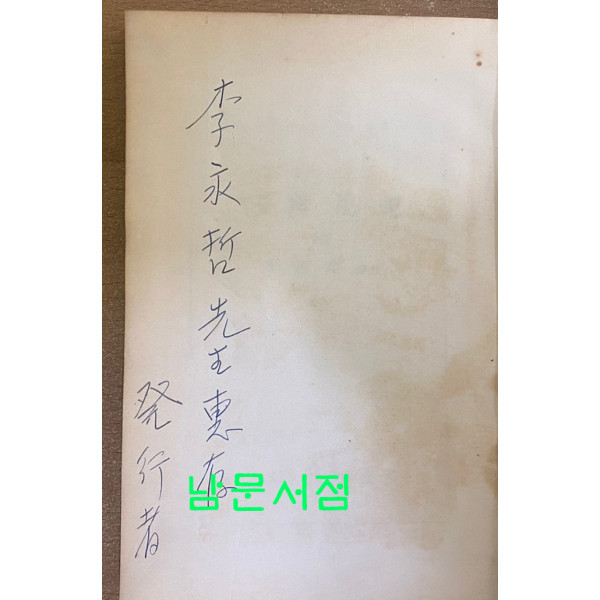 李永哲先生惠存
発行者
남문서점